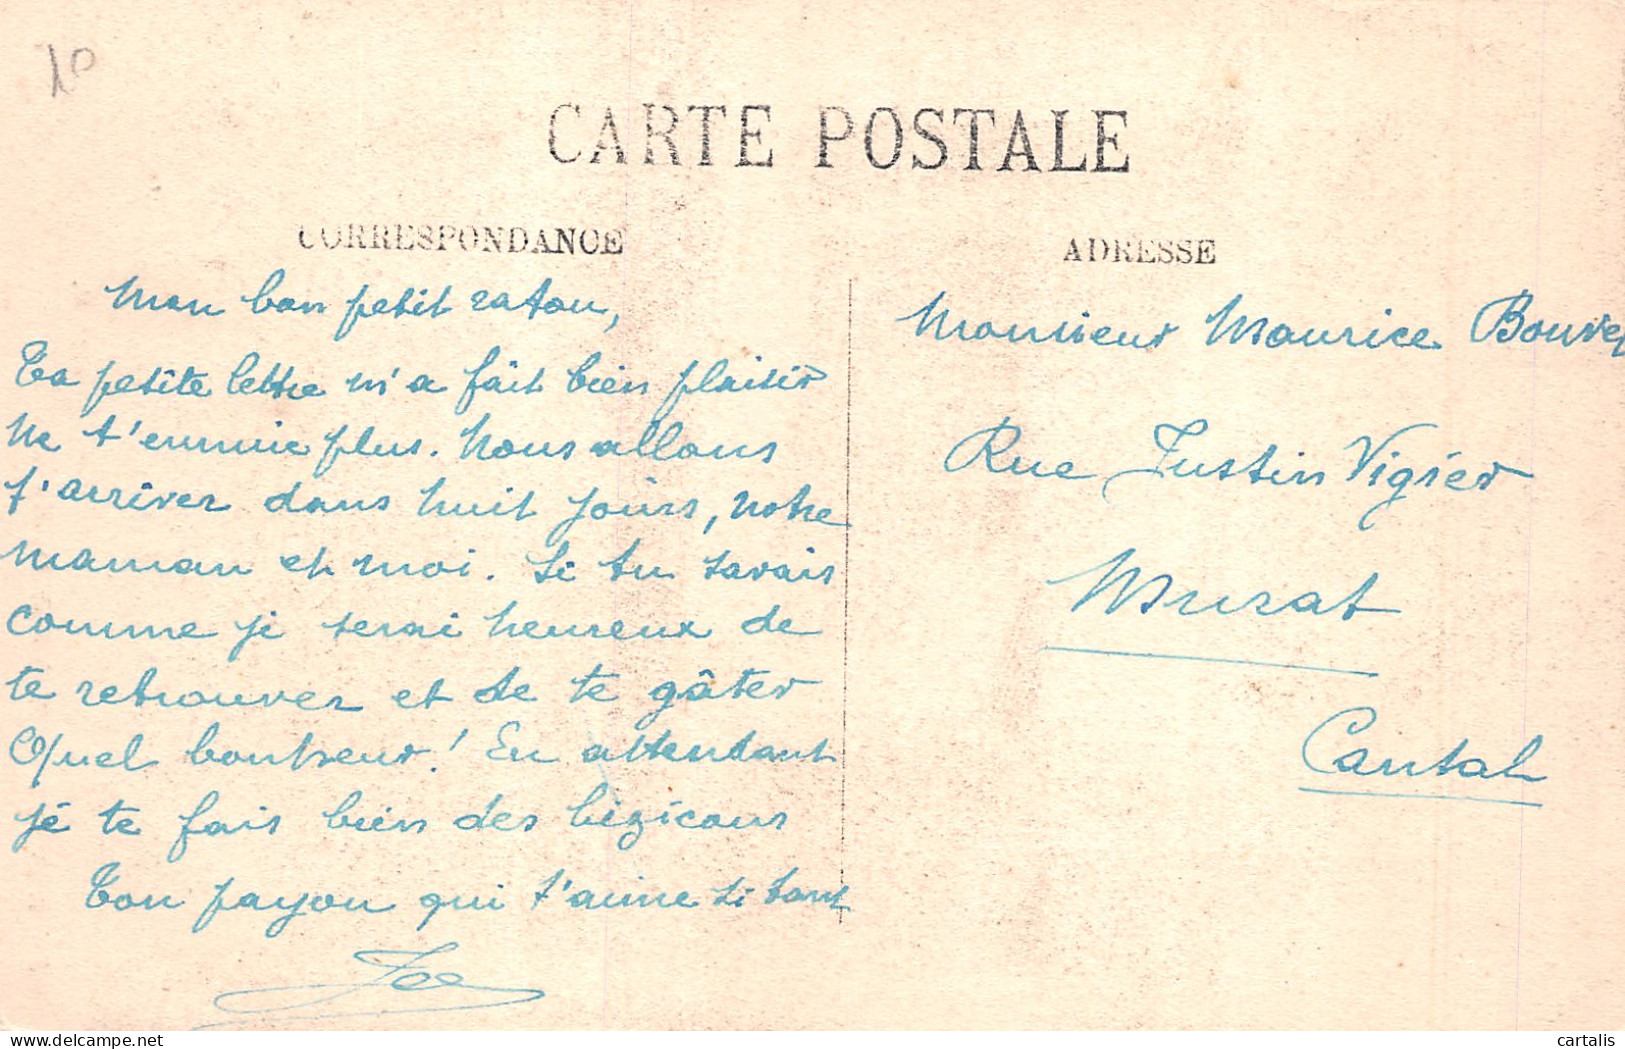 10
CARTE POSTALE
CORRESPONDANCE
ADRESSE
Mon bon petit raton,
Ta petite lettre m'a fait bien plaisir
Ne t'ennuie plus. Nous allons
t'arriver dans huit jours, notre
maman et moi. Si tu savais
comme je serai heureux de
te retrouver et de te gâter
Quel bonheur! En attendant
je te fais bien des bizicous
Ton payou qui t'aime si tant
Monsieur Maurice Bouvet
Rue Justin Vigier
Murat
Cantal
www.delcampe.net
cartalis